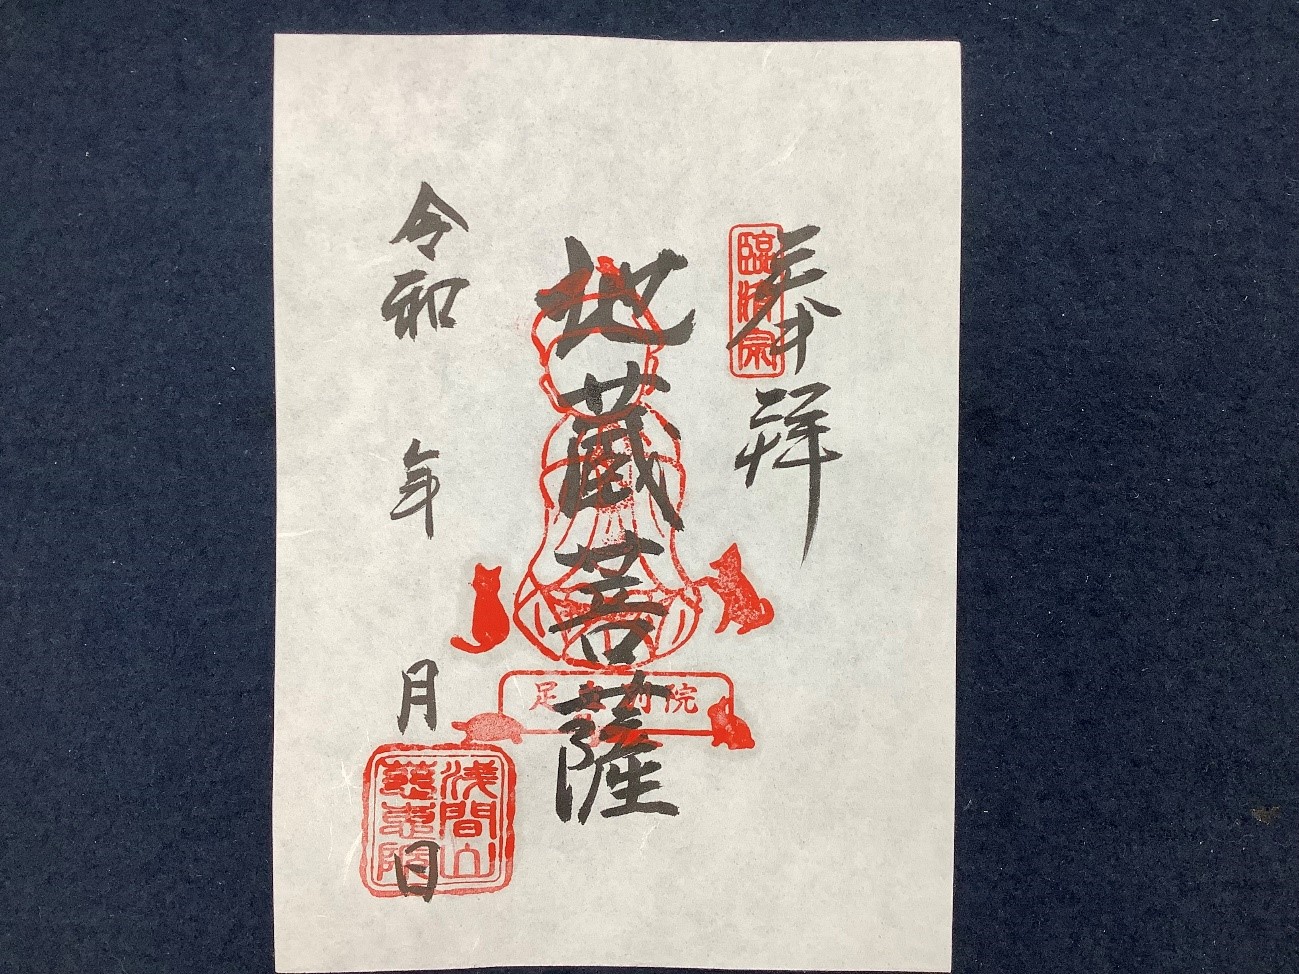 奉拝
臨済宗
地蔵菩薩
足立別院
令和 年 月 日
浅間山
慈恵院